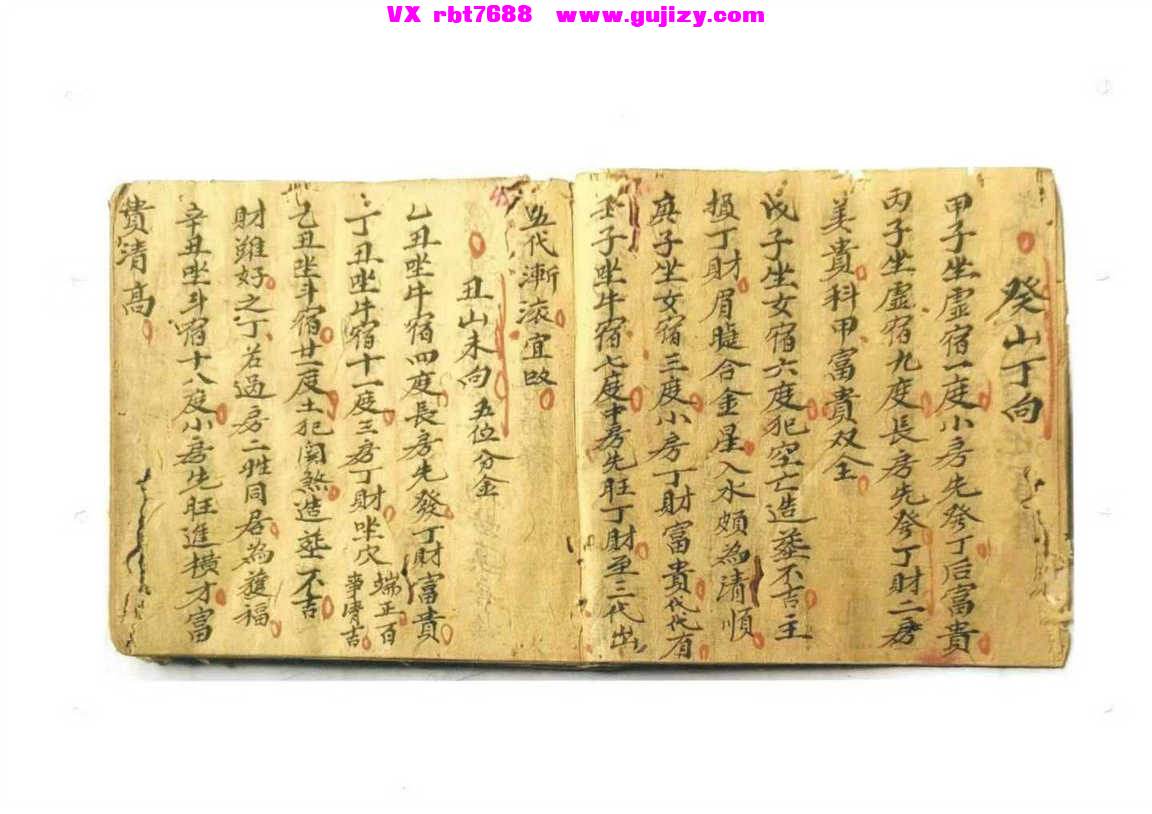 VX rbt7688 www.gujizy.com
癸山丁向
甲子坐虚宿一度小房先發丁后富貴
丙子坐虚宿九度長房先發丁財二房
美貴科甲富貴双全
戊子坐女宿六度犯空亡造葬不吉主
損丁財眉睫合金星入水頗為清順
庚子坐女宿三度小房丁財富貴代代有
壬子坐牛宿七度中房先旺丁財至三代出
五代漸滾宜改
丑山未向五位分金
乙丑坐牛宿四度長房先發丁財富貴
丁丑坐牛宿十一度三房丁財坐穴端正百事皆吉
己丑坐斗宿廿二度土犯関煞造葬不吉
財雖好之丁若過房二姓同居為獲福
辛丑坐斗宿十八度小房先旺進横才富
贵清高